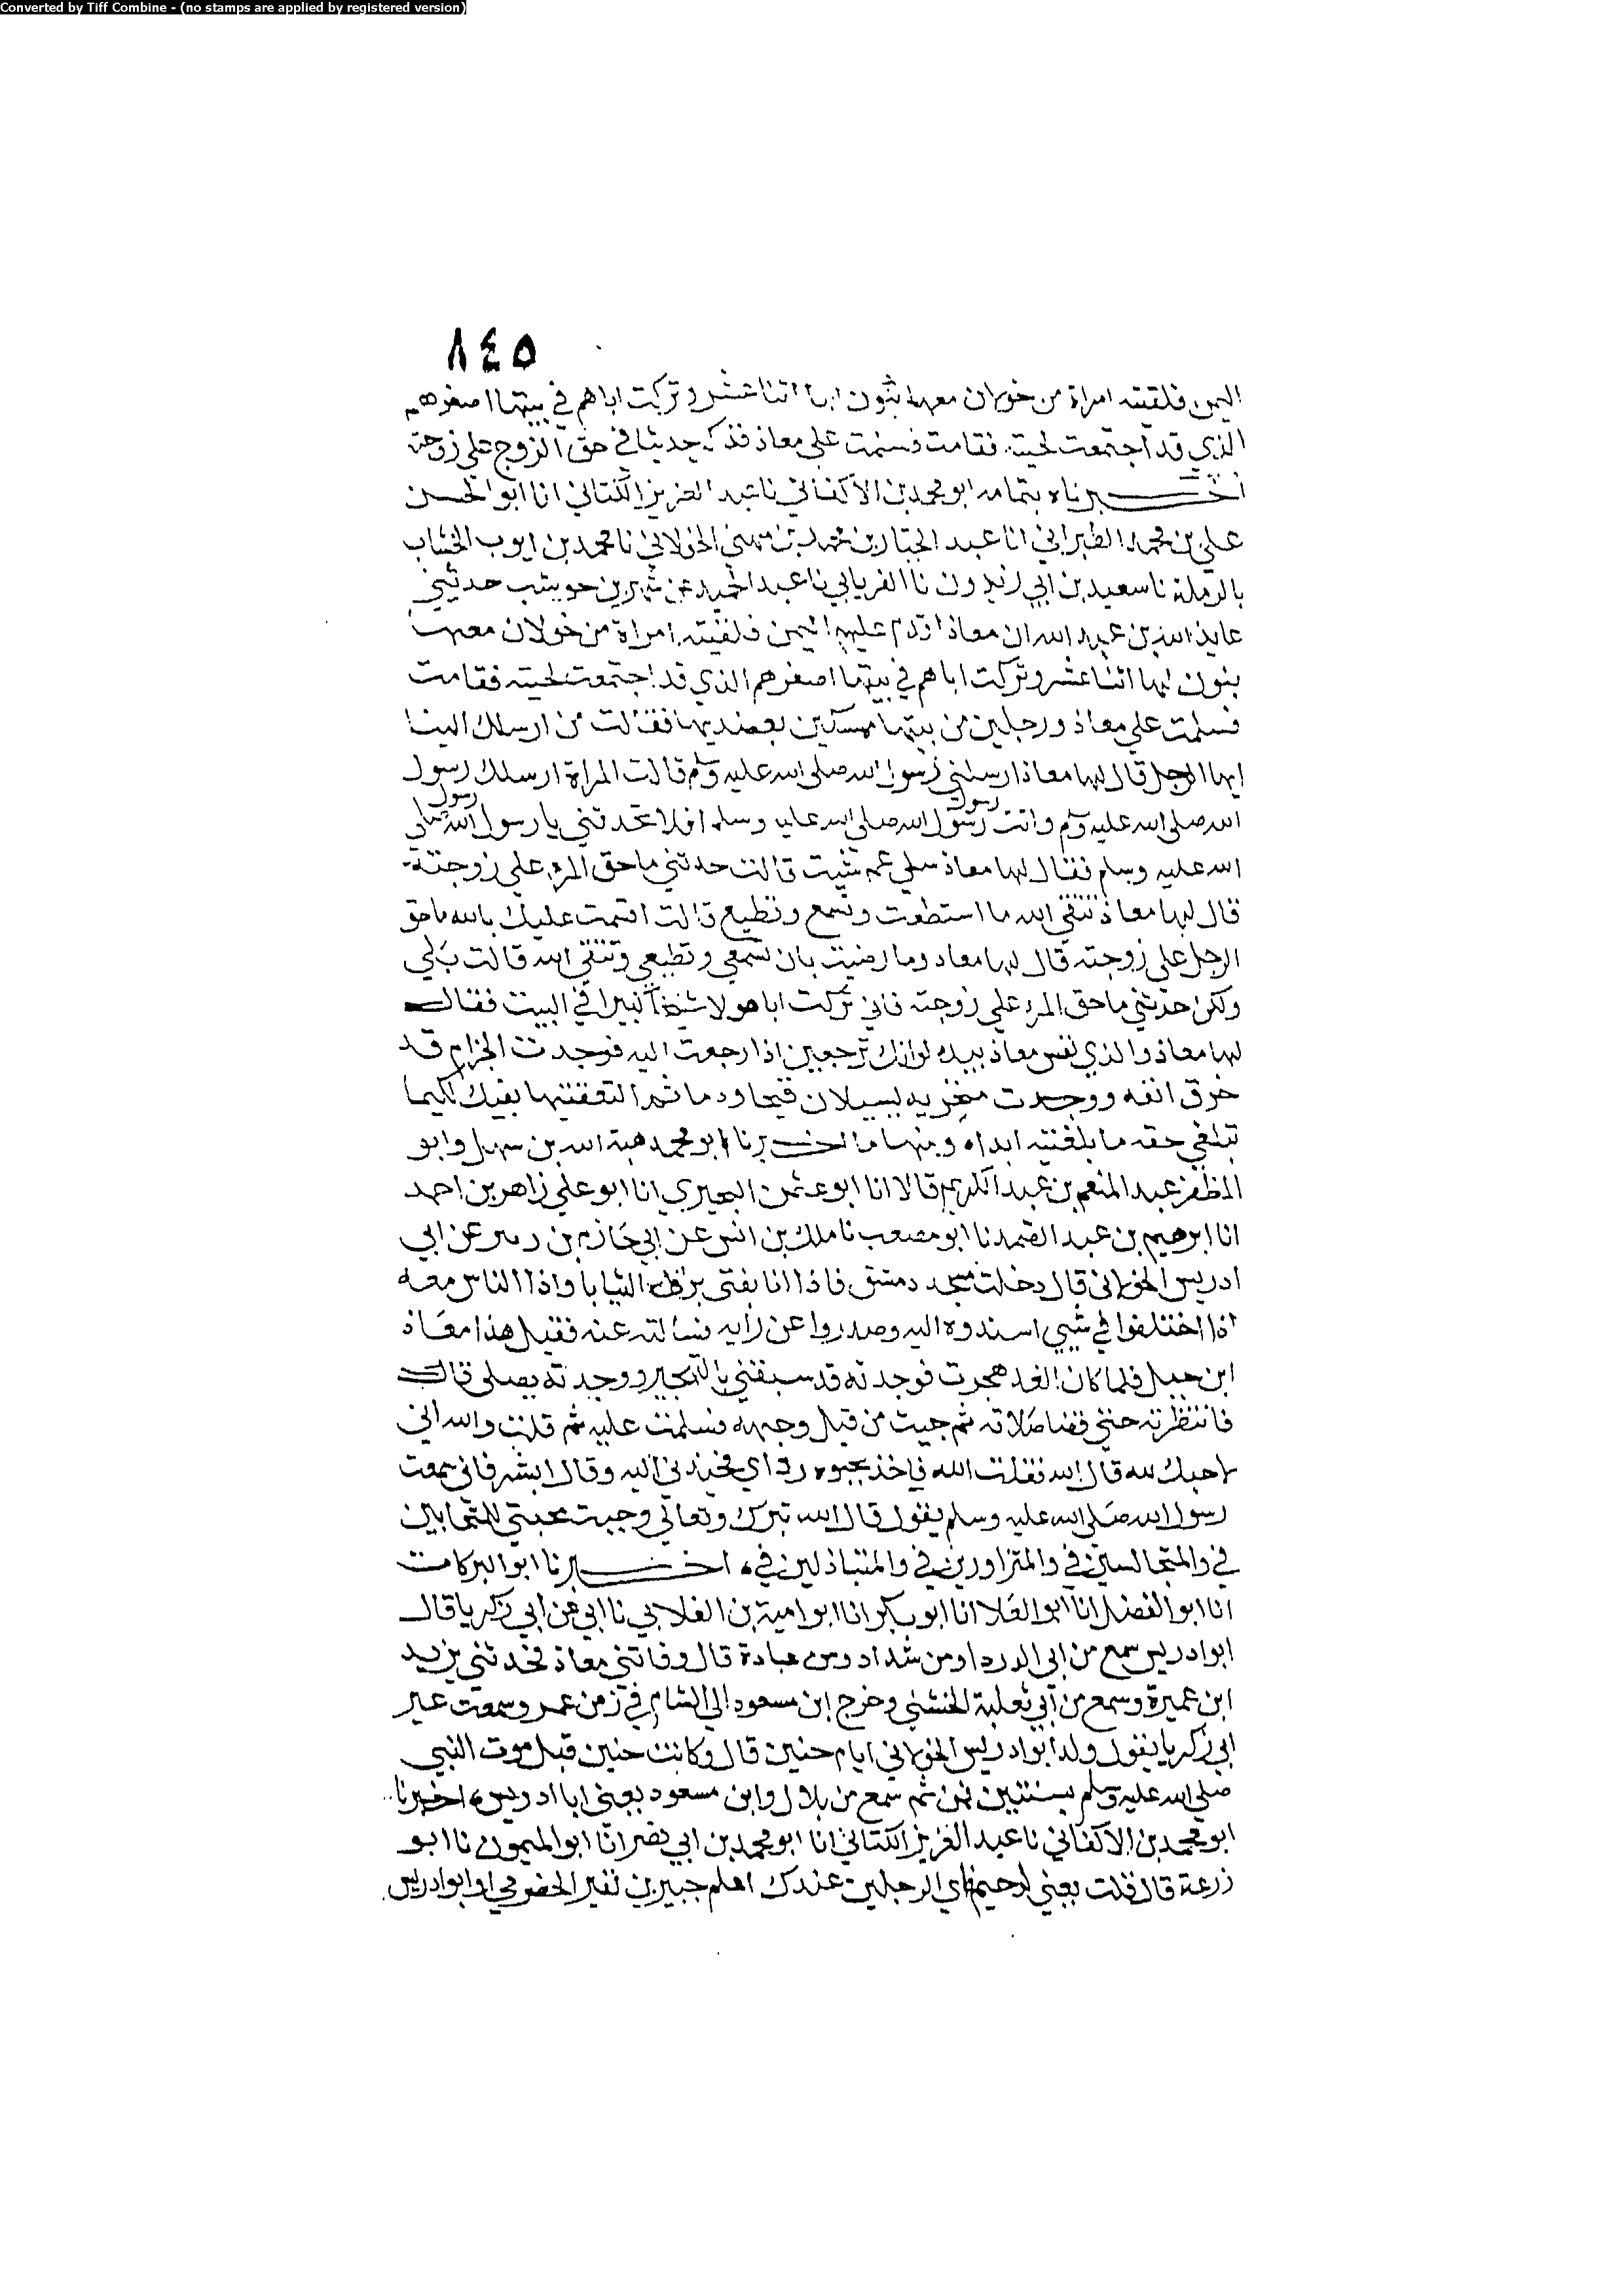 Converted by Tiff Combine - (no stamps are applied by registered version)
٨٤٥
اليمن فلقيته امراة من خولان معها بنون لها اثنا عشر وتركت اباهم في بيتها اصغرهم
الذي قد اجتمعت لحيته فقامت فسلمت على معاذ فذكر حديثا في حق الزوج على زوجته
اخبرناه بتمامه ابو محمد بن الاكفاني نا عبد العزيز الكتاني انا ابو الحسن
علي بن محمد الطبراني انا عبد الجبار بن محمد بن مهنى الخولاني نا محمد بن ايوب الخشاب
بالرملة نا سعيد بن ابي زيدون نا الفريابي نا عبد الحميد عن شهر بن حوشب حدثني
عايذ الله بن عبد الله ان معاذا قدم عليهم اليمن فلقيته امراة من خولان معها
بنون لها اثنا عشر وتركت اباهم في بيتها اصغرهم الذي قد اجتمعت لحيته فقامت
فسلمت على معاذ ورجلين من بيتها ممسكين بعضديها فقالت من ارسلك الينا
ايها الرجل قال لها معاذ ارسلني رسول الله صلى الله عليه وسلم قالت المراة ارسلك رسول
الله صلى الله عليه وسلم وانت رسول رسول الله صلى الله عليه وسلم افلا تحدثني يا رسول رسول الله صلى
الله عليه وسلم فقال لها معاذ سلي عم شيت قالت حدثني ما حق المرء على زوجته
قال لها معاذ تتقي الله ما استطعت وتسمع وتطيع قالت اقسمت عليك بالله ما حق
الرجل على زوجته قال لها معاد وما رضيت بان تسمعي وتطيعي وتتقي الله قالت بلى
ولكن حدثني ما حق المرء على زوجته فاني تركت ابا هولا شيخا كبيرا في البيت فقال
لها معاذ والذي نفس معاذ بيده لو انك ترجعين اذا رجعت اليه فوجدت الجذام قد
خرق انفه ووجدت منخريه يسيلان قيحا ودما ثم التقمتيها بفيك لكيما
تبلغي حقه ما بلغتيه ابداه ومنها ما اخبرنا ابو محمد هبة الله بن سهل وابو
المظفر عبد المنعم بن عبد الكريم قالا انا ابو عثمن البحيري انا ابو علي زاهر بن احمد
انا ابرهيم بن عبد الصمد نا ابو مصعب نا ملك بن انس عن ابي حازم بن دينر عن ابي
ادريس الخولاني قال دخلت مسجد دمشق فاذا انا بفتى براق الثنايا واذا الناس معه
اذا اختلفوا في شيي اسندوه اليه وصدروا عن رايه فسالته عنه فقيل هذا معاذ
ابن جبل فلما كان الغد هجرت فوجدته قد سبقني بالتهجير ووجدته يصلي قال
فانتظرته حتى قضا صلاته ثم جيت من قبل وجهه فسلمت عليه ثم قلت والله اني
لاحبك لله قال الله فقلت الله فاخذ بحبوه رداي فجبذني اليه وقال ابشر فاني سمعت
رسول الله صلى الله عليه وسلم يقول قال الله تبرك وتعالى وجبت محبتي للمتحابين
في والمتجالسين في والمتزاورين في والمتباذلين في، اخبرنا ابو البركات
انا ابو الفضل انا ابو العلا انا ابو بكر انا ابو امية بن الغلابي نا ابي عن ابي زكريا قال
ابو ادريس سمع من ابي الدردا ومن شداد ومن عبادة قال وفاتني معاذ فحدثني يزيد
ابن عميرة وسمع من ابي ثعلبة الخشني وخرج ابن مسعود الى الشام في زمن عمر وسمعت غير
ابي زكريا يقول ولد ابو ادريس الخولاني ايام حنين قال وكانت حنين قبل موت النبي
صلى الله عليه وسلم بسنتين فمن ثم سمع من بلال وابن مسعود يعني ابا ادريس، اخبرنا
ابو محمد بن الاكفاني نا عبد العزيز الكتاني انا ابو محمد بن ابي نصر انا ابو الميمون نا ابو
زرعة قال قلت يعني لدحيم فاي الرجلين عندك اعلم جبير بن نفير الحضرمي او ابو ادريس